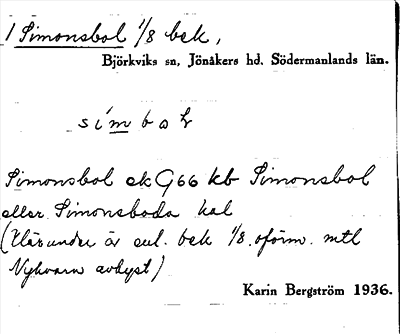 1 Simonsbol 1/8 bek,
Björkviks sn, Jönåkers hd, Södermanlands län.
simbol
Simonsbol ek G66 kb Simonsbol
eller Simonsboda kal
(Härunder är enl. bek 1/8 oförm. mtl
Nykvarn avhyst)
Karin Bergström 1936.